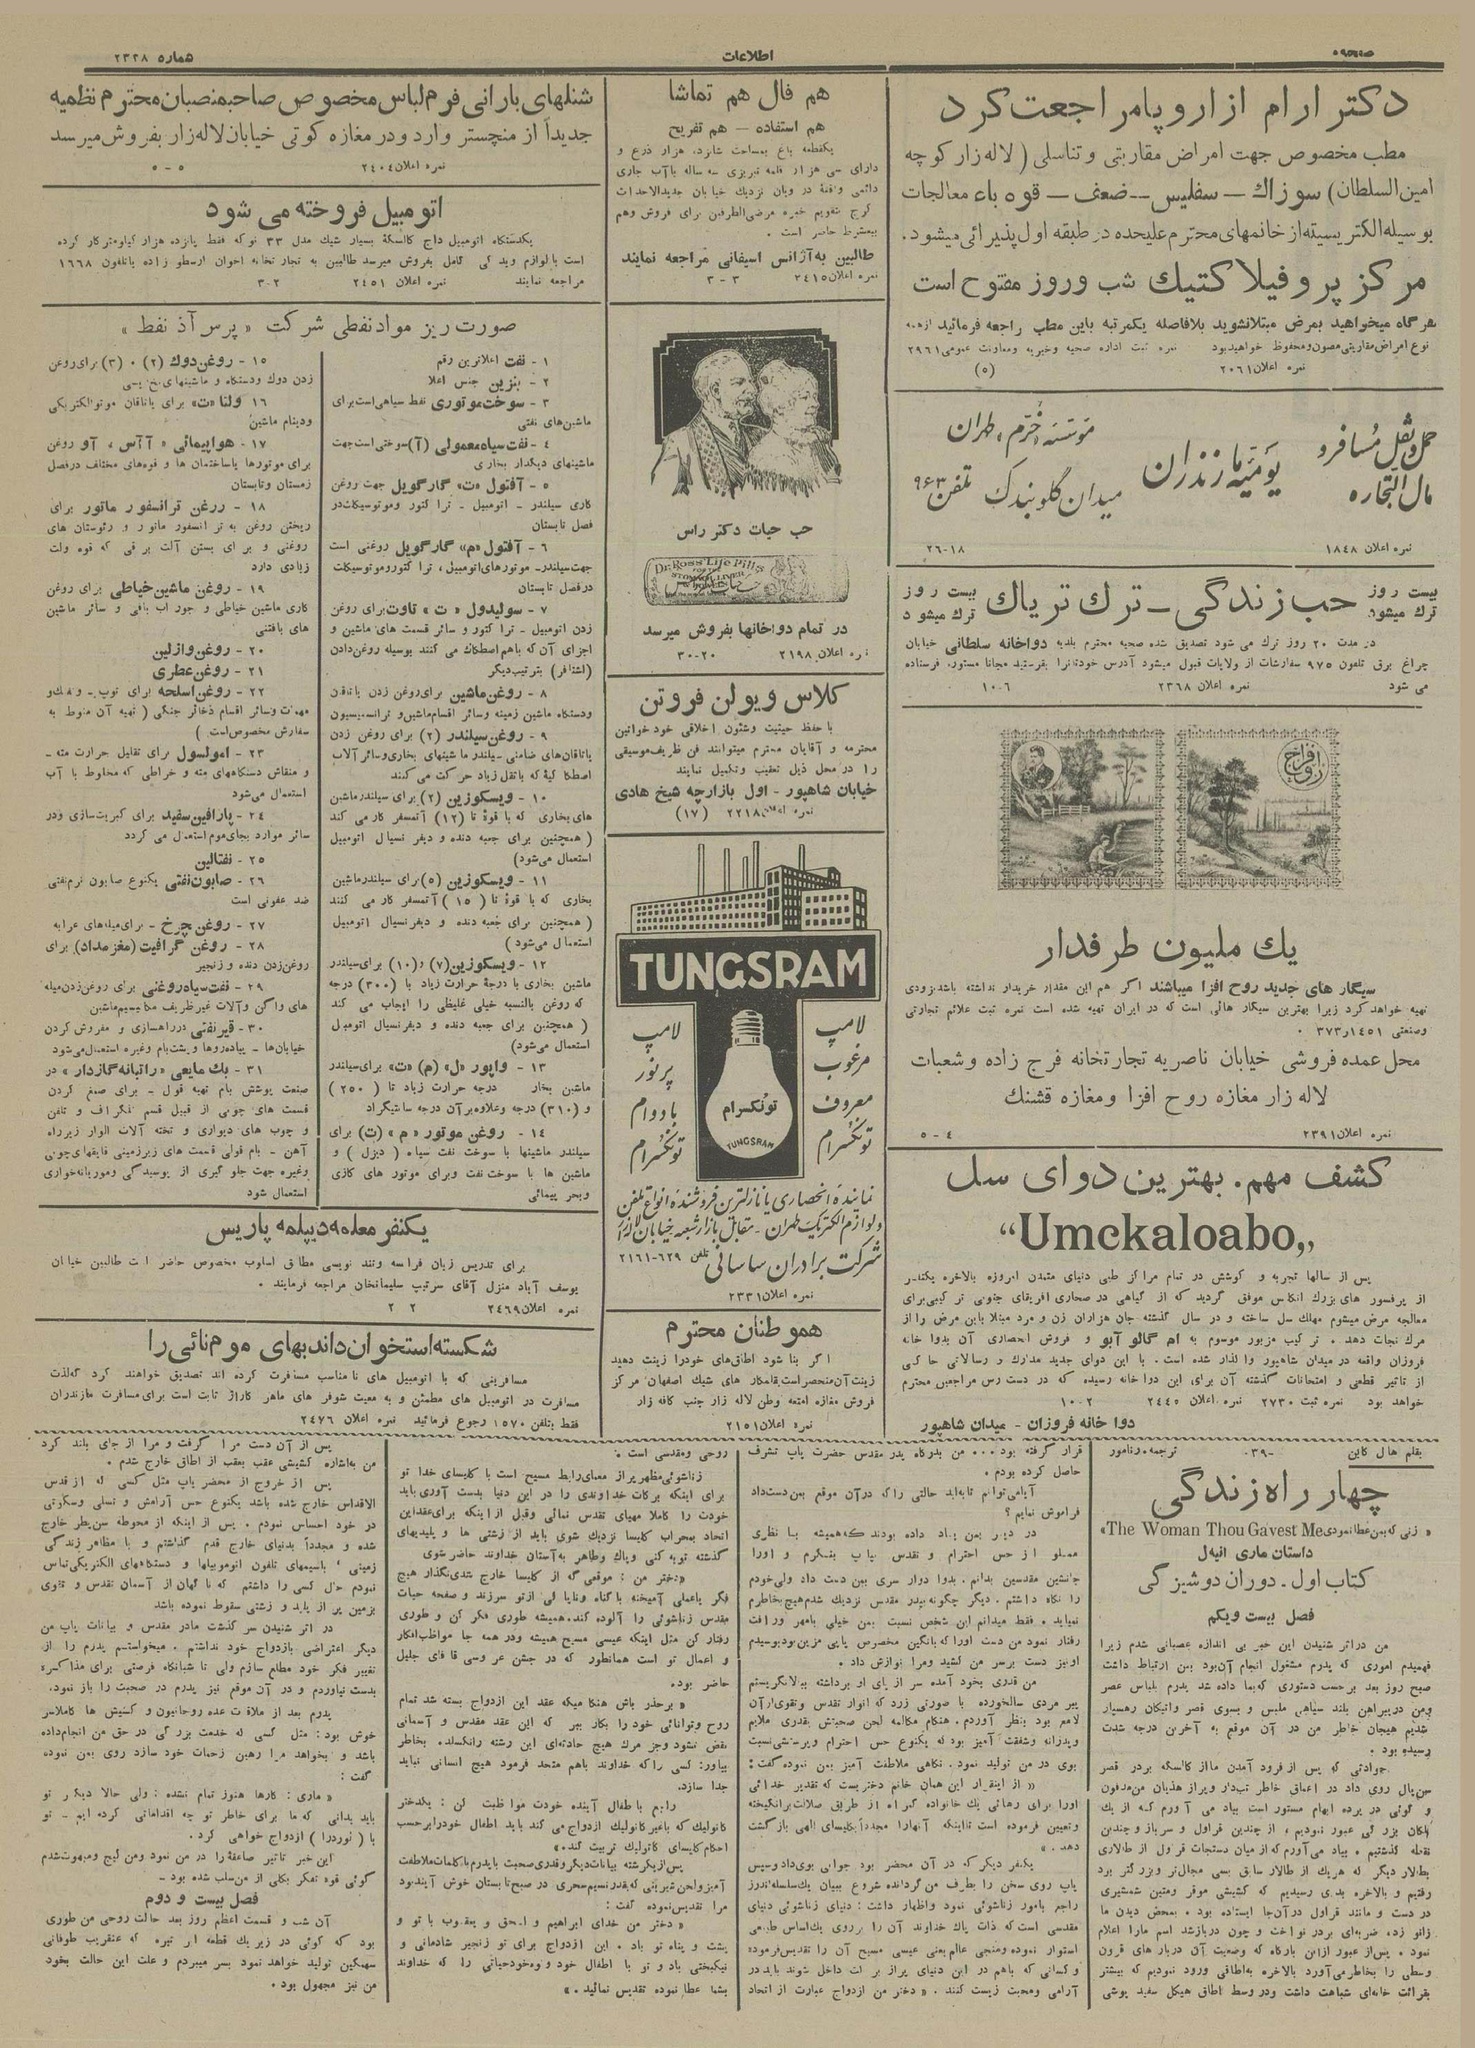 اطلاعات
شماره ۲۳۲۸
دکتر ارام از اروپا مراجعت کرد
مطب مخصوص جهت امراض مقاربتی و تناسلی (لاله زار کوچه
امین السلطان) سوزاك — سفلیس -- ضعف — قوه باء معالجات
بوسیله الکتریسیته از خانمهای محترم علیحده در طبقه اول پذیرائی میشود.
مرکز پروفیلاکتیك شب وروز مفتوح است
هرگاه میخواهید بمرض مبتلا نشوید بلافاصله یکمرتبه باین مطب راجعه فرمائید از همه
نوع امراض مقاربتی مصون و محفوظ خواهید بود نمره ثبت اداره صحیه و خیریه و معاونت عمومی ۲۹۶۱
نمره اعلان ۲۰۶۱ (۵)
حمل و نقل مسافر و
مال التجاره
یومیه مازندران
موسسه خرم، طهران
میدان گلوبندك تلفن ۹۶۳
نمره اعلان ۱۸۴۸ ۲۶-۱۸
بیست روز ترك میشود
حب زندگی - ترك تریاك
بیست روز ترك میشود
در مدت ۲۰ روز ترك می شود تصدیق شده صحیه محترم بلدیه دواخانه سلطانی خیابان
چراغ برق تلفون ۹۷۵ سفارشات از ولایات قبول میشود آدرس خودتانرا بفرستید مجانا مستور، فرستاده
می شود نمره اعلان ۲۳۶۸ ۱۰-۶
روح افزا
یك ملیون طرفدار
سیگار های جدید روح افزا میباشند اگر هم این مقدار خریدار نداشته باشد بزودی
تهیه خواهد کرد زیرا بهترین سیگار هائی است که در ایران تهیه شده است نمره ثبت علائم تجارتی
وصنعتی ۱۴۵۱ر۳۷۳
محل عمده فروشی خیابان ناصریه تجارتخانه فرج زاده وشعبات
لاله زار مغازه روح افزا ومغازه قشنك
نمره اعلان ۲۳۹۱ ۵-۴
کشف مهم. بهترین دوای سل
“Umckaloabo„
پس از سالها تجربه و کوشش در تمام مراکز طبی دنیای متمدن امروزه بالاخره یکنفر
از پرفسور های بزرك انگلیس موفق گردید که از گیاهی در صحاری افریقای جنوبی ترکیبی برای
معالجه مرض میشوم مهلك سل ساخته و در سال گذشته جان هزاران زن و مرد مبتلا باین مرض را از
مرك نجات دهد. ترکیب مزبور موسوم به ام گالو آبو و فروش انحصاری آن بدوا خانه
فروزان واقعه در میدان شاهپور واگذار شده است. با این دوای جدید مدارك و رسالاتی حاکی
از تاثیر قطعی و امتحانات گذشته آن برای این دوا خانه رسیده که در دست رس مراجعین محترم
خواهد بود نمره ثبت ۲۷۳۰ نمره اعلان ۲۴۴۵ ۱۰-۲
دوا خانه فروزان - میدان شاهپور
هم فال هم تماشا
هم استفاده — هم تفریح
یکقطعه باغ بمساحت شانزده هزار ذرع و
دارای سی هزار قلمه تبریزی سه ساله باآب جاری
دائمی واقعۀ در ویان نزدیك خیابان جدیدالاحداث
کرج بتقویم خبره مرضی الطرفین برای فروش وهم
بیعشرط حاضر است.
طالبین به آژانس اسیفانی مراجعه نمایند
نمره اعلان ۲۴۱۵ ۳-۳
حب حیات دکتر راس
Dr. Ross' Life Pills
FOR THE
STOMACH, LIVER
& BOWELS
در تمام دواخانها بفروش میرسد
نمره اعلان ۲۱۹۸ ۳۰-۲۰
کلاس ویولن فروتن
با حفظ حیثیت وشئون اخلاقی خود خوانین
محترمه و آقایان محترم میتوانند فن ظریف موسیقی
را در محل ذیل تعقیب وتکمیل نمایند
خیابان شاهپور - اول بازارچه شیخ هادی
نمره اعلان ۲۲۱۸ (۱۷)
TUNGSRAM
لامپ
مرغوب
معروف
تونگسرام
تونگسرام
TUNGSRAM
لامپ
پرنور
بادوام
تونگسرام
نماینده انحصاری با نازلترین فروشنده انواع تلفن
ولوازم الکتریك طهران - مقابل بازار شعبه خیابان لاله زار
شرکت برادران ساسانی تلفن ۶۲۹-۲۱۶۱
نمره اعلان ۲۳۳۱
هموطنان محترم
اگر بنا شود اطاقهای خودرا زینت دهید
زینت آن منحصر است بقلمکار های شیك اصفهان مرکز
فروش مغازه امتعه وطن لاله زار جنب کافه زار
نمره اعلان ۲۱۵۱
شنلهای بارانی فرم لباس مخصوص صاحبمنصبان محترم نظمیه
جدیداً از منچستر وارد و در مغازه کوتی خیابان لاله زار بفروش میرسد
نمره اعلان ۲۴۰۴ ۵-۵
اتومبیل فروخته می شود
یکدستگاه اتومبیل داج کالسکۀ بسیار شیك مدل ۳۳ نو که فقط پانزده هزار کیلومتر کار کرده
است با لوازم یدکی کامل بفروش میرسد طالبین به تجارتخانه اخوان ارسطو زاده باتلفون ۱۶۶۸
مراجعه نمایند نمره اعلان ۲۴۵۱ ۳-۲
صورت ریز مواد نفطی شرکت «پرس آذ نفط»
۱ - نفت اعلاترین رقم
۲ - بنزین جنس اعلا
۳ - سوخت موتوری نفط سیاهی است برای
ماشین‌های نفتی
۴ - نفت سیاه معمولی (آ) سوختی است جهت
ماشینهای دیگدار بخاری
۵ - آفتول «ت» گارگویل جهت روغن
کاری سیلندر - اتومبیل - تراکتور وموتوسیکلت در
فصل تابستان
۶ - آفتول «م» گارگویل روغنی است
جهت سیلندر - موتورهای اتومبیل، تراکتور و موتوسیکلت
در فصل تابستان
۷ - سولیدول «ت» تاوت برای روغن
زدن اتومبیل - تراکتور و سائر قسمت های ماشین و
اجزای آن که باهم اصطکاك می کنند بوسیله روغن دادن
(اشتافر) بترتیب دیگر
۸ - روغن ماشین برای روغن زدن یاتاقان
ودستگاه ماشین زمینه وسائر اقسام ماشین و ترانسمیسیون
۹ - روغن سیلندر (۲) برای روغن زدن
یاتاقان‌های ضامنی - سیلندر ماشینهای بخاری و سائر آلات
اصطکاکیۀ که باثقل زیاد حرکت می کنند
۱۰ - ویسکوزین (۲) برای سیلندر ماشین
های بخاری که با قوۀ تا (۱۲) آتمسفر کار می کند
(همچنین برای جعبه دنده و دیفرنسیال اتومبیل
استعمال می‌شود)
۱۱ - ویسکوزین (۵) برای سیلندر ماشین
بخاری که با قوۀ تا (۱۵) آتمسفر کار می کنند
(همچنین برای جعبه دنده و دیفرنسیال اتومبیل
استعمال می‌شود)
۱۲ - ویسکوزین (۷) و (۱۰) برای سیلندر
ماشین بخاری با درجۀ حرارت زیاد با (۳۰۰) درجه
که روغن بالنسبه خیلی غلیظی را ایجاب می کند
(همچنین برای جعبه دنده و دیفرنسیال اتومبیل
استعمال می‌شود)
۱۳ - واپور «ل» (م) «ت» برای سیلندر
ماشین بخار درجه حرارت زیاد تا (۲۵۰)
و (۳۱۰) درجه وعلاوه بر آن درجه سانتیگراد
۱۴ - روغن موتور «م» (ت) برای
سیلندر ماشینها با سوخت نفت سیاه (دیزل) و
ماشین ها با سوخت نفت وبرای موتور های گازی
وبحر پیمائی
۱۵ - روغن دوك (۲)، (۳) برای روغن
زدن دوك ودستگاه و ماشینهای نخ ریسی
۱۶ - ولتا «ت» برای یاتاقان موتوالکتریکی
ودینام ماشین
۱۷ - هواپیمائی «آآس، آو» روغن
برای موتورها باساختمان ها و قوه‌های مختلف در فصل
زمستان وتابستان
۱۸ - روغن ترانسفورماتور برای
ریختن روغن به ترانسفورماتور و رئوستان های
روغنی و برای بستن آلت برقی که قوه ولت
زیادی دارد
۱۹ - روغن ماشین خیاطی برای روغن
کاری ماشین خیاطی و جوراب بافی و سائر ماشین
های بافتنی
۲۰ - روغن وازلین
۲۱ - روغن عطری
۲۲ - روغن اسلحه برای توپ - وتفنك و
مهمات وسائر اقسام ذخائر جنگی (تهیه آن منوط به
سفارش مخصوص است.)
۲۳ - امولسول برای تقلیل حرارت مته -
و منقاش دستگاههای مته و خراطی که مخلوط با آب
استعمال می‌شود
۲۴ - پارافین سفید برای کبریت سازی ودر
سائر موارد بجای موم استعمال می گردد
۲۵ - نفتالین
۲۶ - صابون نفتی یکنوع صابون نرم نفتی
ضد عفونی است
۲۷ - روغن چرخ - برای میله‌های عرابه
۲۸ - روغن گرافیت (مغز مداد) برای
روغن زدن دنده و زنجیر
۲۹ - نفت سیاه روغنی برای روغن زدن میله
های واگن وآلات غیر ظریف مکانیسم ماشین
۳۰ - قیر نفتی در راهسازی و مفروش کردن
خیابان‌ها - پیاده‌روها و پشت بام وغیره استعمال می‌شود
۳۱ - بك مایعی «راتبانه گازدار» در
صنعت پوشش بام تهیه قول - برای صمغ کردن
قسمت های چوبی از قبیل قسم تلگراف و تلفن
و چوب های دیواری و تخته آلات الوار زیر راه
آهن - بام قولی قسمت های زیرزمینی قایقهای چوبی
وغیره جهت جلوگیری از پوسیدگی و موریانه خواری
استعمال شود
یکنفر معلمه دیپلمه پاریس
برای تدریس زبان فرانسه وتند نویسی مطابق اسلوب مخصوص حاضر است طالبین خیابان
یوسف آباد منزل آقای سرتیپ سلیمانخان مراجعه فرمایند.
نمره اعلان ۲۴۶۹ ۲ ۲
شکسته استخوان داند بهای مومنائی را
مسافرینی که با اتومبیل های نامناسب مسافرت کرده اند تصدیق خواهند کرد که لذت
مسافرت در اتومبیل های مطمئن و به معیت شوفر های ماهر کاراژ ثابت است برای مسافرت مازندران
فقط بتلفن ۱۵۷۰ رجوع فرمائید نمره اعلان ۲۴۷۶
بقلم هال کاین -۳۹۰ ترجمه، رنامور
چهار راه زندگی
«زنی که بمن عطا نمودی The Woman Thou Gavest Me»
داستان ماری انیه‌ل
کتاب اول - دوران دوشیزگی
فصل بیست ویکم
من در اثر شنیدن این خبر بی اندازه عصبانی شدم زیرا
فهمیدم اموری که پدرم مشغول انجام آن بود بمن ارتباط داشت
صبح روز بعد برحسب دستوری که بما داده شد پدرم بلباس عصر
ومن در پیراهن بلند سیاهی ملبس و بسوی قصر واتیکان رهسپار
شدیم هیجان خاطر من در آن موقع به آخرین درجه شدت
رسیده بود.
حوادثی که پس از فرود آمدن ما از کالسکه بر در قصر
سن پال روی داد در اعماق خاطر تب‌دار وپراز هذیان من مدفون
و گوئی در پرده ابهام مستور است بیاد می آورم که از یك
پلکان بزرگی عبور نمودیم، از چندین قراول و سرباز وچندین
نقطه گذشتیم. بیاد می‌آورم که از میان دستجات قراول از طالاری
بطالار دیگر که هریك از طالار سابق بسی مجلل‌تر و بزرگتر بود
رفتیم و بالاخره بدری رسیدیم که کشیشی موقر ومتین شمشیری
در دست و مانند قراول در آن‌جا ایستاده بود. بمحض دیدن ما
زانو زده ضربه‌ای بر در نواخت و چون در باز شد اسم مارا اعلام
نمود. پس از عبور ازاین بارگاه که وضعیت آن دربار های قرون
وسطی را بخاطر می‌آورد بالاخره به‌اطاقی ورود نمودیم که بیشتر
بقرائت خانه‌ای شباهت داشت ودر وسط اطاق هیکل سفید پوشی
قرار گرفته بود... من بدرگاه پدر مقدس حضرت پاپ تشرف
حاصل کرده بودم.
آیا می‌توانم تا به‌ابد حالتی را که در آن موقع بمن دست داد
فراموش نمایم؟
در دیر بمن یاد داده بودند که همیشه با نظری
مملو از حس احترام و تقدس بپاپ بنگرم و او را
جانشین مقدسین بدانم. بدوا دوار سری بمن دست داد ولی خودم
را نگاه داشتم. دیگر چگونه بپدر مقدس نزدیك شدم هیچ بخاطرم
نمیاید. فقط میدانم این شخص نسبت بمن خیلی بامهر ورافت
رفتار نمود من دست اورا که بانگین مخصوص پاپی مزین بود بوسیدم
اونیز دست برسر من کشید ومرا نوازش داد.
من قدری بخود آمده سر از پای او برداشته ببالا نگریستم
پیر مردی سالخورده با صورتی زرد که انوار تقدس وتقوی از آن
لامع بود بنظر آوردم. هنگام مکالمه لحن صحبتش بقدری ملایم
وپدرانه وشفقت آمیز بود که یکنوع حس احترام وپرستشی نسبت
بوی در من تولید نمود. نگاهی ملاطفت آمیز بمن نموده گفت:
«از اینقرار این همان خانم دختریست که تقدیر خدائی
اورا برای رهائی یك خانواده گمراه از طریق ضلالت برانگیخته
وتعیین فرموده است تا اینکه آنهارا مجدداً بکلیسای الهی بازگشت
دهد.»
یکنفر دیگر که در آن محضر بود جوابی بوی داد وسپس
پاپ روی سخن را بطرف من گردانده شروع ببیان یك سلسله اندرز
راجع بامور زناشوئی نمود واظهار داشت: دنیای زناشوئی دنیای
مقدسی است که ذات پاك خداوند آن را برروی یك اساس طبیعی
استوار نموده ومنجی عالم یعنی عیسی مسیح آن را تقدیس فرموده
و کسانی که باهم در این دنیای پراز برکت داخل شوند باید در
آرامی ومحبت زیست کنند. «دختر من ازدواج عبارت از اتحاد
روحی ومقدسی است.
زناشوئی مظهر پراز معنای رابط مسیح است با کلیسای خدا تو
برای اینکه برکات خداوندی را در این دنیا بدست آوری باید
خودت را کاملا مهیای تقدس نمائی وقبل از اینکه برای عقد این
اتحاد بمحراب کلیسا نزدیك شوی باید از زشتی ها و پلیدیهای
گذشته توبه کنی وپاك وطاهر به‌آستان خداوند حاضر شوی
«دختر من: موقعی که از کلیسا خارج شدی نگذار هیچ
فکر یا عملی آمیخته باگناه وخطایا لی از تو سرزند و صفحه حیات
مقدس زناشوئی را آلوده کند. همیشه طوری فکر کن و طوری
رفتار کن مثل اینکه عیسی مسیح همیشه ودر همه جا مواظب افکار
و اعمال تو است همانطور که در جشن عروسی قانای جلیل
حاضر بود.
«برحذر باش هنگامیکه عقد این ازدواج بسته شد تمام
روح وتوانائی خود را بکار ببر که این عقد مقدس و آسمانی
نقض نشود وجز مرك هیچ حادثه‌ای این رشته رانگسلد. بخاطر
بیاور: کسی را که خداوند باهم متحد فرمود هیچ انسانی نباید
جدا سازد.
راجع باطفال آینده خودت مواظبت کن: یکدختر
کاتولیك که باغیر کاتولیك ازدواج می کند باید اطفال خودرا برحسب
احکام کلیسای کاتولیك تربیت کند.»
پس از یکرشته بیانات دیگر وقدری صحبت با پدرم باکلمات ملاطفت
آمیز ولحن شیرینی که بقدر نسیم سحری در صبح تابستان خوش آیند بود
مرا تقدیس نموده گفت:
«دختر من خدای ابراهیم و اسحق و یعقوب با تو و
پشت و پناه تو باد. این ازدواج برای تو زنجیر شادمانی و
نیکبختی باد و تو با اطفال خود و وجود حیاتی را که خداوند
بشما عطا نموده تقدیس نمائید.»
پس از آن دست مرا گرفت و مرا از جای بلند کرد
من به‌اشاره کشیشی عقب بعقب از اطاق خارج شدم.
پس از خروج از محضر پاپ مثل کسی که از قدس
الاقداس خارج شده باشد یکنوع حس آرامش و تسلی وسکوتی
در خود احساس نمودم. پس از اینکه از محوطه سن پطر خارج
شده و مجدداً بدنیای خارج قدم گذاشتم و با مظاهر زندگی
زمینی، باسیمهای تلفون اتوموبیلها و دستگاههای الکتریکی تماس
نمودم حال کسی را داشتم که ناگهان از آسمان تقدس و تقوی
بزمین پر از پلید و زشتی سقوط نموده باشد
در اثر شنیدن سرگذشت مادر مقدس و بیانات پاپ من
دیگر اعتراضی بازدواج خود نداشتم. میخواستم پدرم را از
تغییر فکر خود مطلع سازم ولی تا شبانگاه فرصتی برای مذاکره
بدست نیاوردم و در آن موقع نیز پدرم در صحبت را باز نمود.
پدرم بعد از ملاقات عده روحانیون و کشیش ها کاملا سر
خوش بود: مثل کسی که خدمت بزرگی در حق من انجام داده
باشد و بخواهد مرا رهین زحمات خود سازد روی بمن نموده
گفت:
«ماری: کارها هنوز تمام نشده: ولی حالا دیگر تو
باید بدانی که ما برای خاطر تو چه اقداماتی کرده ایم - تو
با (لوردرا) ازدواج خواهی کرد.
این خبر تاثیر صاعقۀ را در من نمود ومن گیج ومبهوت شدم
گوئی قوه تفکر بکلی از من سلب شده بود -
فصل بیست و دوم
آن شب و قسمت اعظم روز بعد حالت روحی من طوری
بود که گوئی در زیر یك قطعه ابر تیره که عنقریب طوفانی
سهمگین تولید خواهد نمود بسر میبردم و علت این حالت بخود
من نیز مجهول بود.